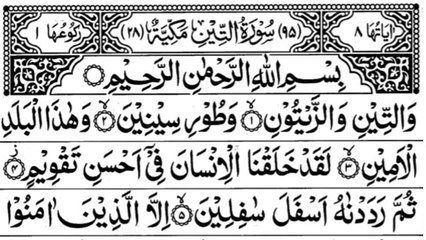 اٰيَاتُهَا ٨ (٩٥) سُوْرَةُ التِّيْنِ مَكِّيَّةٌ (٢٨) رُكُوْعُهَا ١
بِسْمِ اللّٰهِ الرَّحْمٰنِ الرَّحِيْمِ
وَالتِّيْنِ وَالزَّيْتُوْنِ ۙ١ وَطُوْرِ سِيْنِيْنَ ۙ٢ وَهٰذَا الْبَلَدِ
الْاَمِيْنِ ۙ٣ لَقَدْ خَلَقْنَا الْاِنْسَانَ فِيْۤ اَحْسَنِ تَقْوِيْمٍ ؗ٤
ثُمَّ رَدَدْنٰهُ اَسْفَلَ سٰفِلِيْنَ ۙ٥ اِلَّا الَّذِيْنَ اٰمَنُوْا